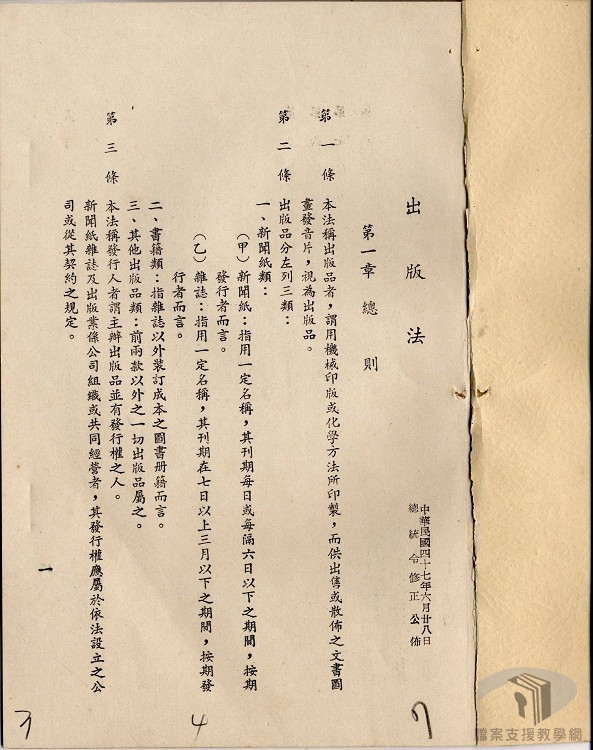 出版法
中華民國四十七年六月廿八日
總統令修正公佈
第一章 總則
第一條 本法稱出版品者，謂用機械印版或化學方法所印製，而供出售或散佈之文書圖
畫發音片，視為出版品。
第二條 出版品分左列三類：
一、新聞紙類：
（甲）新聞紙：指用一定名稱，其刊期每日或每隔六日以下之期間，按期
發行者而言。
（乙）雜誌：指用一定名稱，其刊期在七日以上三月以下之期間，按期發
行者而言。
二、書籍類：指雜誌以外裝訂成本之圖書册籍而言。
三、其他出版品類：前兩款以外之一切出版品屬之。
第三條 本法稱發行人者謂主辦出版品並有發行權之人。
新聞紙雜誌及出版業係公司組織或共同經營者，其發行權應屬於依法設立之公
司或從其契約之規定。
一
4
檔案支援教學網